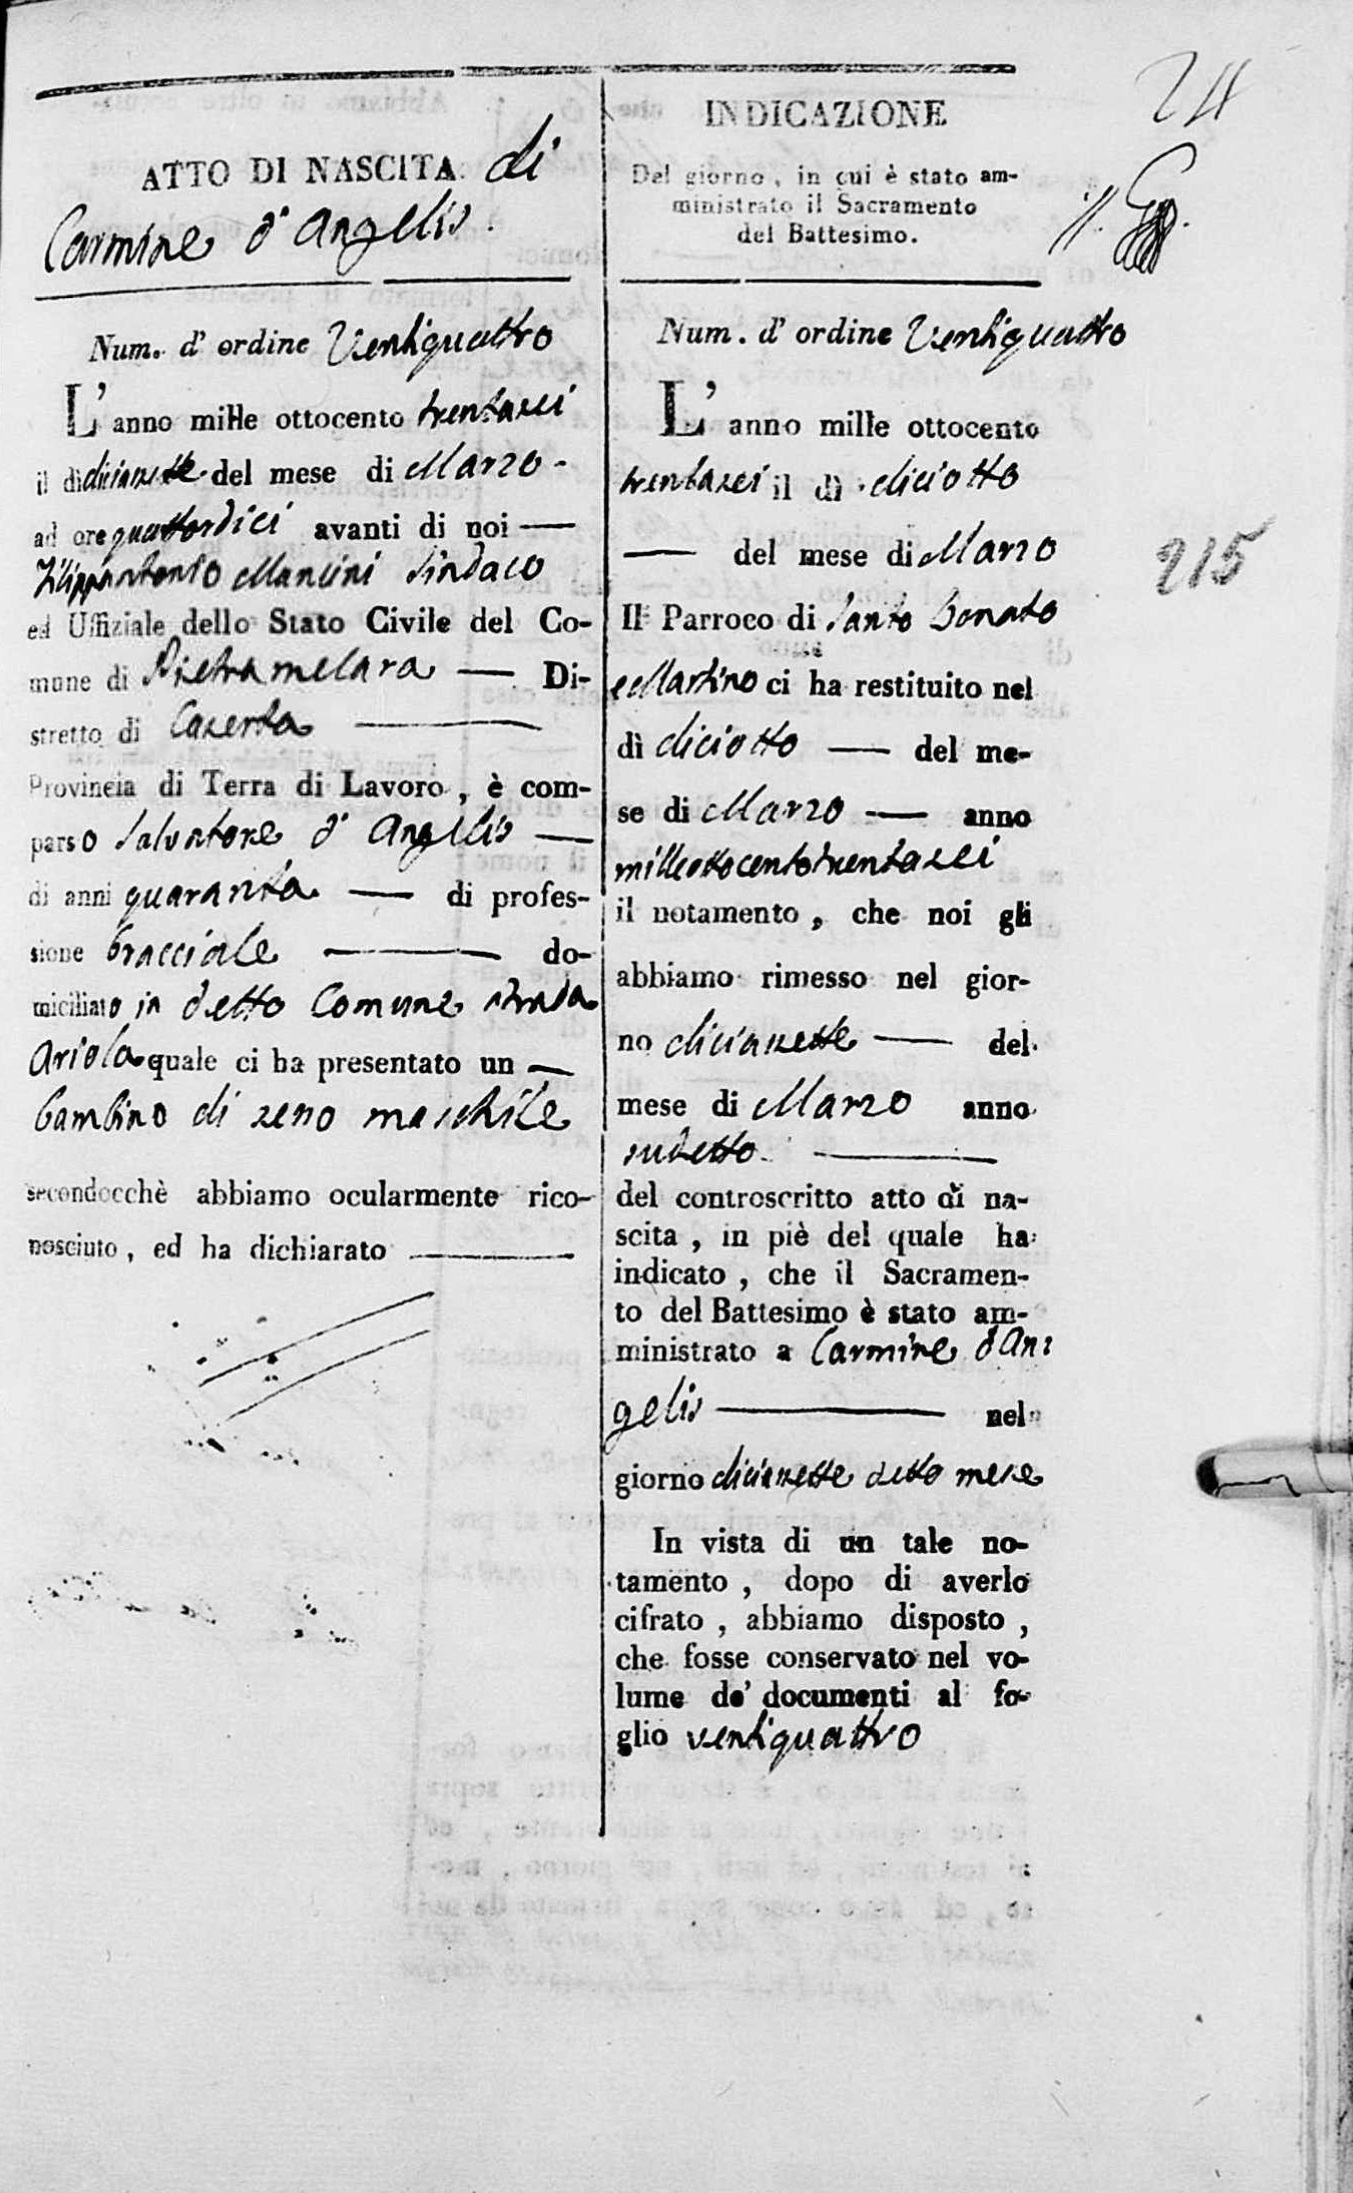 24
ATTO DI NASCITA di
Carmine d'Angelis.
Num. d'ordine Ventiquattro
L'anno mille ottocento trentasei
il dì diciassette del mese di Marzo -
ad ore quattordici avanti di noi —
Filippantonio Mancini Sindaco
ed Uffiziale dello Stato Civile del Co-
mune di Pietramelara — Di-
stretto di Caserta —
Provincia di Terra di Lavoro, è com-
parso Salvatore d'Angelis —
di anni quaranta — di profes-
sione bracciale — do-
miciliato in detto Comune strada
Ariola quale ci ha presentato un —
bambino di sesso maschile
secondocchè abbiamo ocularmente rico-
nosciuto, ed ha dichiarato —
INDICAZIONE
Del giorno, in cui è stato am-
ministrato il Sacramento
del Battesimo.
Num. d'ordine Ventiquattro
L'anno mille ottocento
trentasei il dì diciotto
— del mese di Marzo
Il Parroco di Santo Donato
e Martino ci ha restituito nel
dì diciotto — del me-
se di Marzo — anno
milleottocentotrentasei
il notamento, che noi gli
abbiamo rimesso nel gior-
no diciassette — del
mese di Marzo anno
sudetto —
del controscritto atto di na-
scita, in piè del quale ha
indicato, che il Sacramen-
to del Battesimo è stato am-
ministrato a Carmine d'An:
gelis — nel
giorno diciassette detto mese
In vista di un tale no-
tamento, dopo di averlo
cifrato, abbiamo disposto,
che fosse conservato nel vo-
lume de' documenti al fo-
glio ventiquattro
215